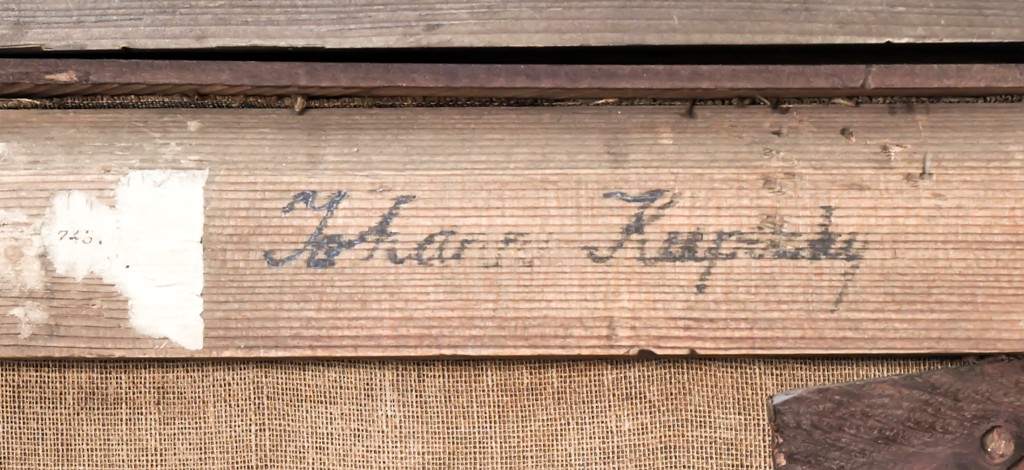 743.
Johann Kupetzky